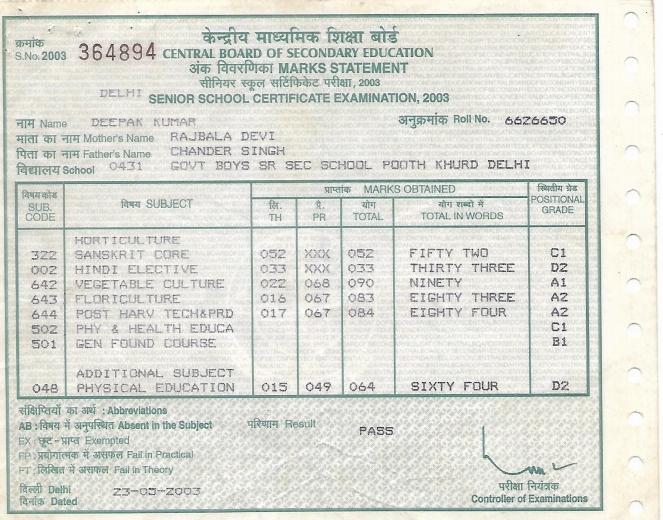 केन्द्रीय माध्यमिक शिक्षा बोर्ड
क्रमांक
S.No. 2003 364894 CENTRAL BOARD OF SECONDARY EDUCATION
अंक विवरणिका MARKS STATEMENT
सीनियर स्कूल सर्टिफिकेट परीक्षा, 2003
DELHI SENIOR SCHOOL CERTIFICATE EXAMINATION, 2003
नाम Name DEEPAK KUMAR अनुक्रमांक Roll No. 6626650
माता का नाम Mother's Name RAJBALA DEVI
पिता का नाम Father's Name CHANDER SINGH
विद्यालय School 0431 GOVT BOYS SR SEC SCHOOL POOTH KHURD DELHI
विषय कोड SUB. CODE विषय SUBJECT प्राप्तांक MARKS OBTAINED स्थितीय ग्रेड POSITIONAL GRADE
लि. TH प्रै. PR योग TOTAL योग शब्दों में TOTAL IN WORDS
HORTICULTURE
322 SANSKRIT CORE 052 XXX 052 FIFTY TWO C1
002 HINDI ELECTIVE 033 XXX 033 THIRTY THREE D2
642 VEGETABLE CULTURE 022 068 090 NINETY A1
643 FLORICULTURE 016 067 083 EIGHTY THREE A2
644 POST HARV TECH&PRD 017 067 084 EIGHTY FOUR A2
502 PHY & HEALTH EDUCA C1
501 GEN FOUND COURSE B1
ADDITIONAL SUBJECT
048 PHYSICAL EDUCATION 015 049 064 SIXTY FOUR D2
संक्षिप्तियों का अर्थ : Abbreviations
AB : विषय में अनुपस्थित Absent in the Subject परिणाम Result PASS
EX : छूट-प्राप्त Exempted
FP : प्रयोगात्मक में असफल Fail in Practical
FT : लिखित में असफल Fail in Theory
दिल्ली Delhi
दिनांक Dated 23-05-2003
परीक्षा नियंत्रक
Controller of Examinations